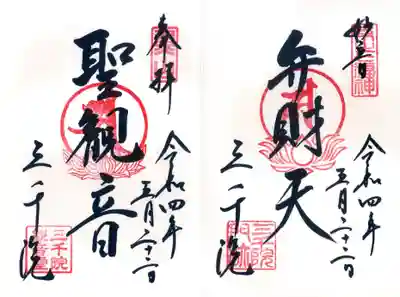 奉拝
聖観音
令和四年
五月二十二日
三千院
三千院
観音堂
妙音
弁財天
令和四年
五月二十二日
三千院